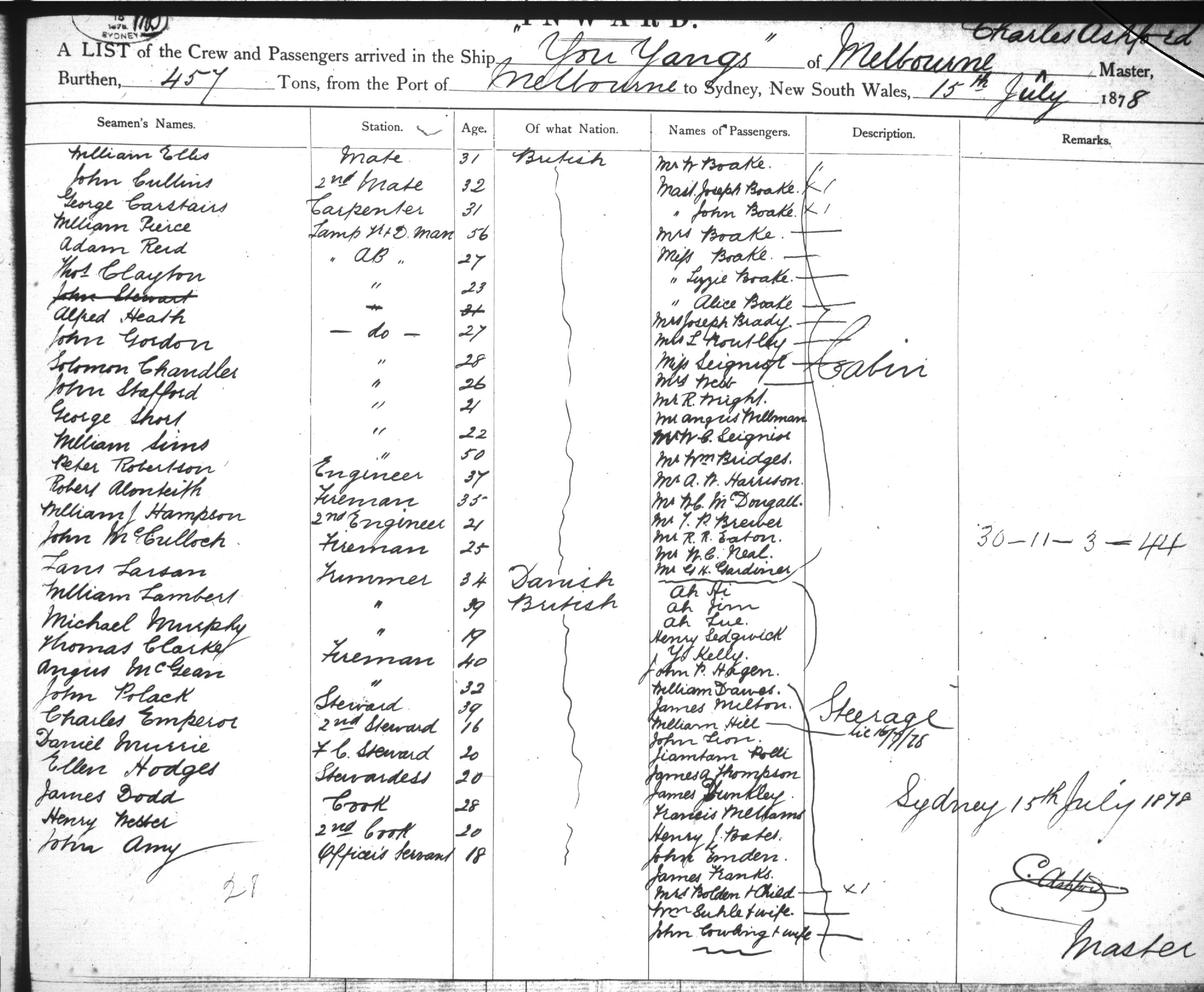 INWARD.
Charles Ashford
A LIST of the Crew and Passengers arrived in the Ship "You Yangs" of Melbourne Master,
Burthen, 457 Tons, from the Port of Melbourne to Sydney, New South Wales, 15th July 1878
Seamen's Names. Station. Age. Of what Nation. Names of Passengers. Description. Remarks.
William Ellis Mate 31 British Mr W Boake.
John Cullins 2nd Mate 32 Mast. Joseph Boake. x1
George Carstairs Carpenter 31 " John Boake. x1
William Pierce Lamp Man 56 Mrs Boake.
Adam Reid " AB " 27 Miss Boake.
Thos Clayton " 23 " Lizzie Boake.
John Stewart 21 " Alice Boake
Alfred Heath - do - 27 Mrs Joseph Brady.
John Gordon " 28 Mrs L Routley
Solomon Chandler " 26 Miss Seignior Cabin
John Stafford " 21 Mrs Webb
George Short " 22 Mr R. Wright.
William Sims " 50 Mr Angus Wellman
Peter Robertson Engineer 37 Mr W. C. Seignior
Robert Monteith Fireman 35 Mr Wm Bridges.
William J Hampson 2nd Engineer 21 Mr A. W. Harrison.
John McCulloch. Fireman 25 Mr W.C. McDougall.
Lars Larsan Trimmer 34 Danish Mr T. P. Brewer
William Lambert " 39 British Mr R. R. Eaton.
Michael Murphy " 19 Mr W. C. Neal. 30-11-3-44
Thomas Clarke Fireman 40 Mr G H. Gardiner
Angus McGean " 32 Ah Hi
John Polack Steward 39 Ah Jim
Charles Emperor 2nd Steward 16 Ah Lue.
Daniel Murrie F. C. Steward 20 Henry Sedgwick
Ellen Hodges Stewardess 20 Kelly.
James Dodd Cook 28 John P. Hagen.
Henry Webber 2nd Cook 20 William Dawes.
John Amy Officers Servant 18 James Milton. Steerage
William Hill
John Lion.
James A Thompson
James Dunkley.
Francis Williams Sydney 15th July 1878
Henry J. Bates.
John Emden.
James Franks.
28 Mrs Bolden & Child x1 C. Ashford
Wm Suhle & wife.
John Cowling & wife Master